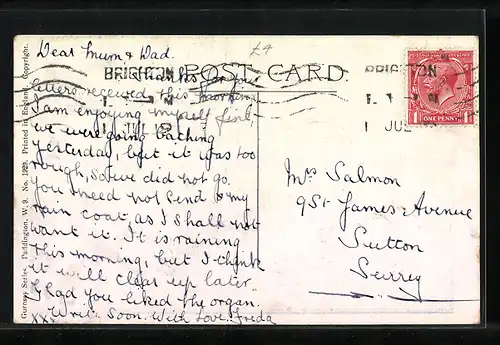 Dear Mum & Dad.
£4
POST CARD.
BRIGHTON
BRIGHTON
JUL
JUL
ONE PENNY
1 1
Many thanks for your
letters received this morning
I am enjoying myself fine,
we were going bathing
yesterday, but it was too
rough, so we did not go.
You need not send my
rain coat as I shall not
want it. It is raining
this morning, but I think
it will clear up later
Glad you liked the organ.
Write Soon. With Love. Freda
xxx
Mrs Salmon
9 St James Avenue
Sutton
Surrey
Gurney Series, Paddington, W. 9. No. 1929. Printed in England. Copyright.